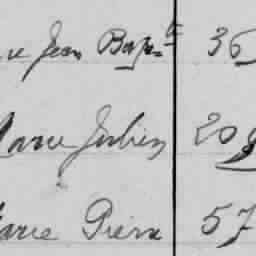 re Jean Bapte 36
Marie Julien 20
Marie Pierre 57